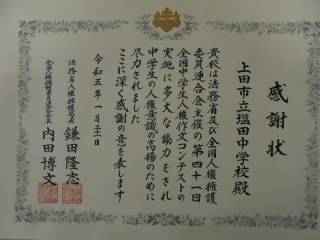 感謝状
上田市立塩田中学校殿
貴校は法務省及び全国人権擁護
委員連合会主催の第四十一回
全国中学生人権作文コンテストの
実施に多大な協力をされ
中学生の人権意識の高揚のために
尽力されました
ここに深く感謝の意を表します
令和五年一月三十一日
法務省人権擁護局長 鎌田隆志
全国人権擁護委員連合会長 内田博文